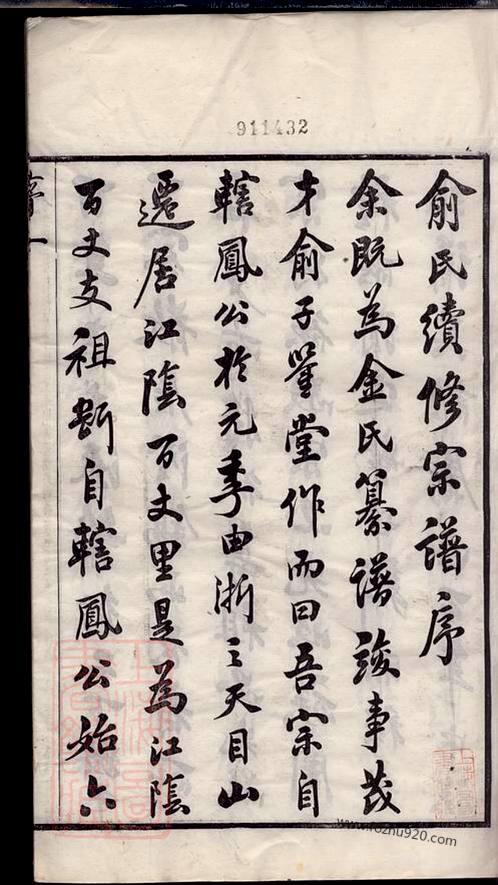 911432
俞氏續修宗譜序
余既為金氏纂譜竣事茂
才俞子瑩堂作而曰吾宗自
轄鳳公於元季由浙之天目山
遷居江陰百丈里是為江陰
百丈支祖斷自轄鳳公始六
序一
www.rozhu920.com